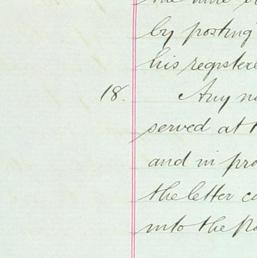 by posting
his registere
18. Any no
served at t
and in pro
the letter co
into the Po